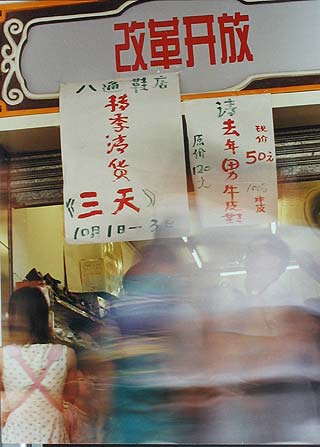 改革开放
八渔鞋店
转季清货
《三天》
10月1日—3日
清去年男牛皮鞋
原价120元
现价50元
100%牛皮